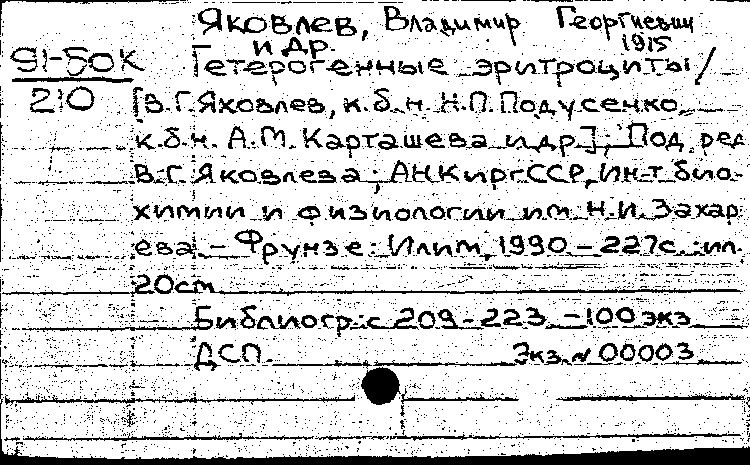 Яковлев, Владимир Георгиевич
и др. 1915
91-50К
210
Гетерогенные эритроциты/
[В.Г.Яковлев, к.б.н. Н.П. Подусенко,
к.б.н. А.М. Карташева и др.]; Под ред
В.Г. Яковлева; АН КиргССР, Ин-т био-
химии и физиологии им. Н.И. Захар
ева. - Фрунзе: Илим, 1990 - 227с.: ил.
20cm
Библиогр.: с 209-223. -100 экз
ДСП. Экз. № 00003